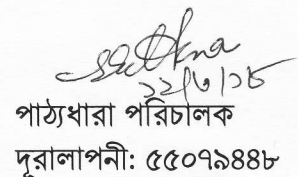 ২২/৬/১৮
পাঠ্যধারা পরিচালক
দূরালাপনী: ৫৫০৭৯৪৪৮